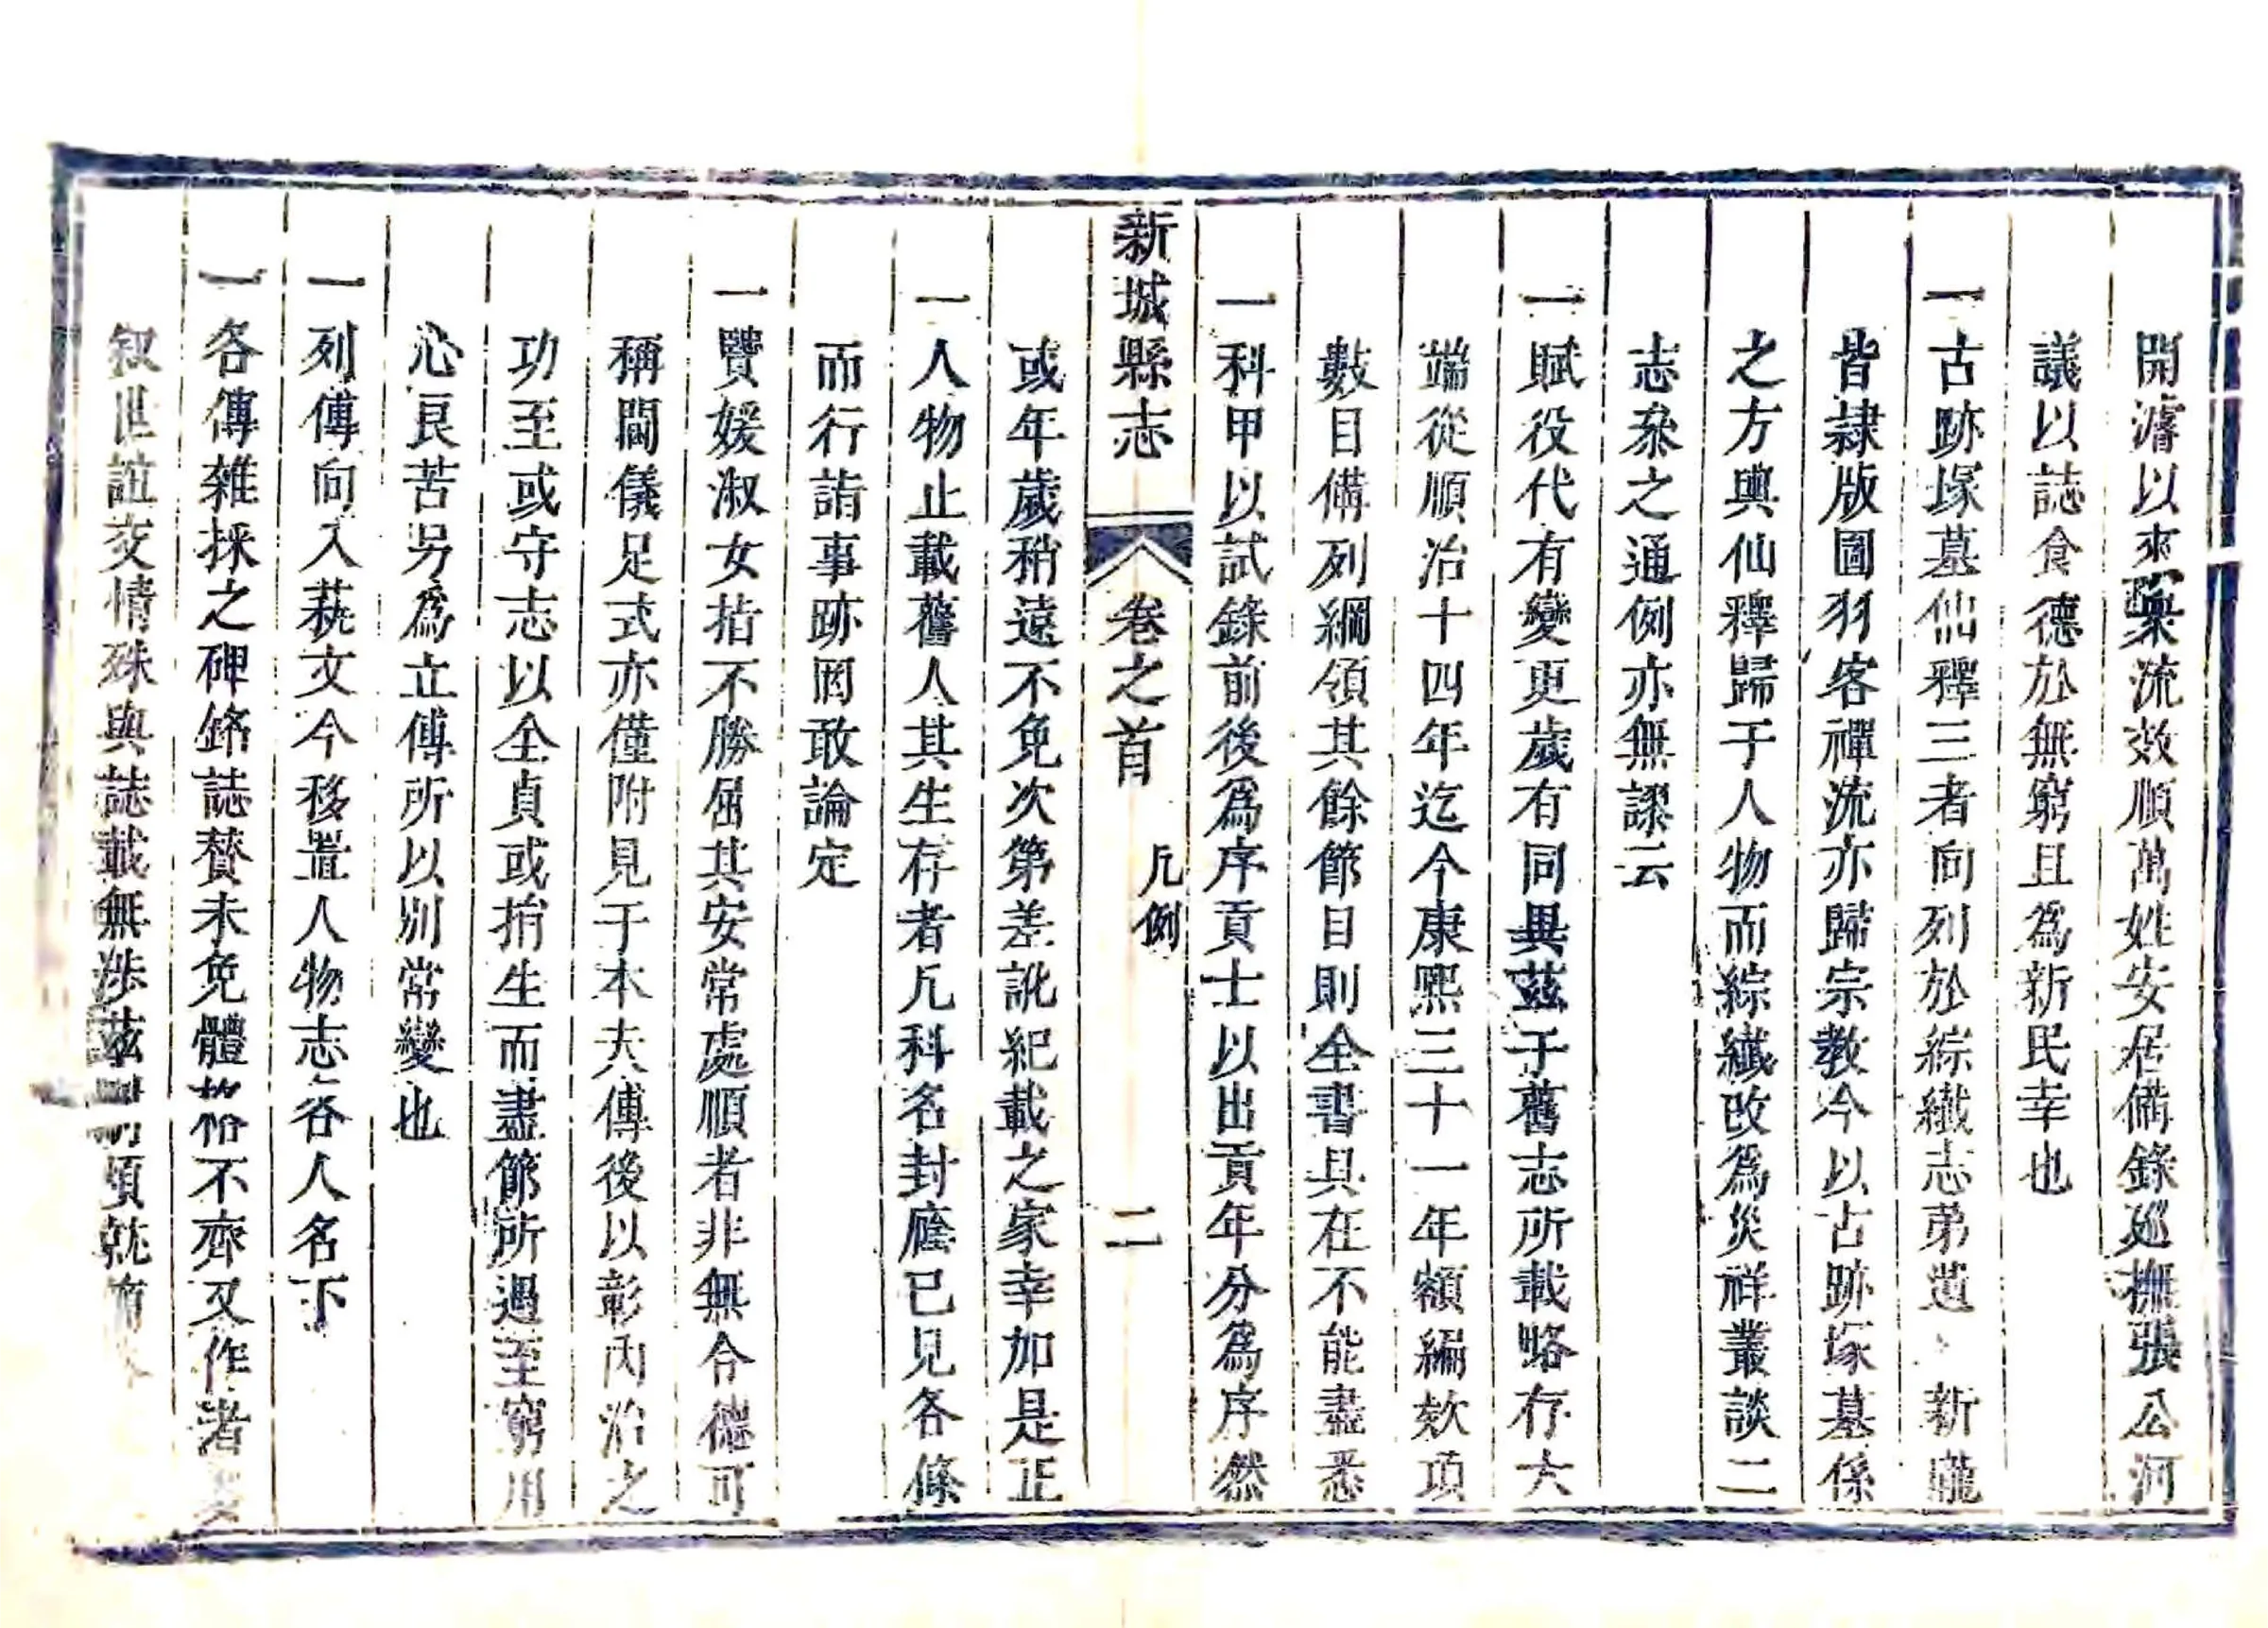 開濬以來衆流效順萬姓安居備錄廵撫張公河
議以誌食德於無窮且爲新民幸也
一古跡塚墓仙釋三者向列於綜纖志弟道新隴
皆隷版圖羽客禪流亦歸宗教今以古跡塚墓係
之方輿仙釋歸于人物而綜纖改爲災祥叢談二
志叅之通例亦無謬云
一賦役代有變更歲有同異茲于舊志所載略存大
端從順治十四年迄今康熙三十一年額編欵項
數目備列綱領其餘節目則全書具在不能盡悉
一科甲以試錄前後爲序貢士以出貢年分爲序然
新城縣志 卷之首 凡例 二
或年歲稍遠不免次第差訛紀載之家幸加是正
一人物止載舊人其生存者凡科名封廕已見各條
而行誼事跡罔敢論定
一賢媛淑女指不勝屈其安常處順者非無令德可
稱閫儀足式亦僅附見于本夫傳後以彰內治之
功至或守志以全貞或捐生而盡節所遇至窮用
心良苦另爲立傳所以别常變也
一列傳向入蓺文今移置人物志各人名下
一各傳雜採之碑銘誌贊未免體裁不齊又作者
叙世誼交情殊與誌載無涉茲 須就